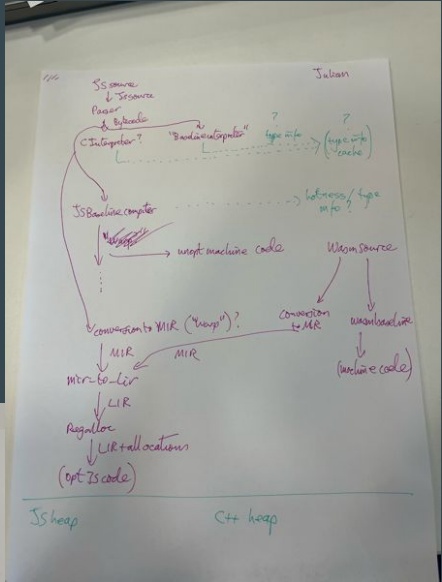 Julian
JS source
↓ JS source
Parser
↓ Bytecode
C Interpreter?
"Baseline interpreter"
?
type info
?
(type info
cache)
JS Baseline compiler
hotness/type
info?
→ unopt machine code
Wasm source
conversion to MIR ("warp")?
conversion
to MIR
wasm baseline
(machine code)
MIR
MIR
mir_to_lir
↓ LIR
Regalloc
↓ LIR+allocations
(opt JS code)
JS heap
C++ heap